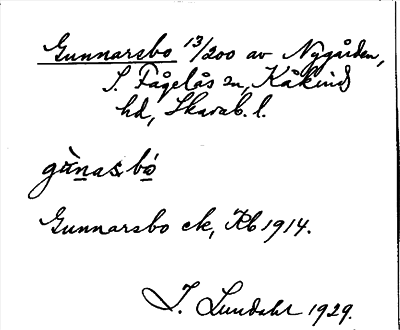 Gunnarsbo 13/200 av Nygården,
S. Fågelås sn, Kåkinds
hd, Skarab. l.
gùnas bó
Gunnarsbo ek, Kb 1914.
I. Lundahl 1929.